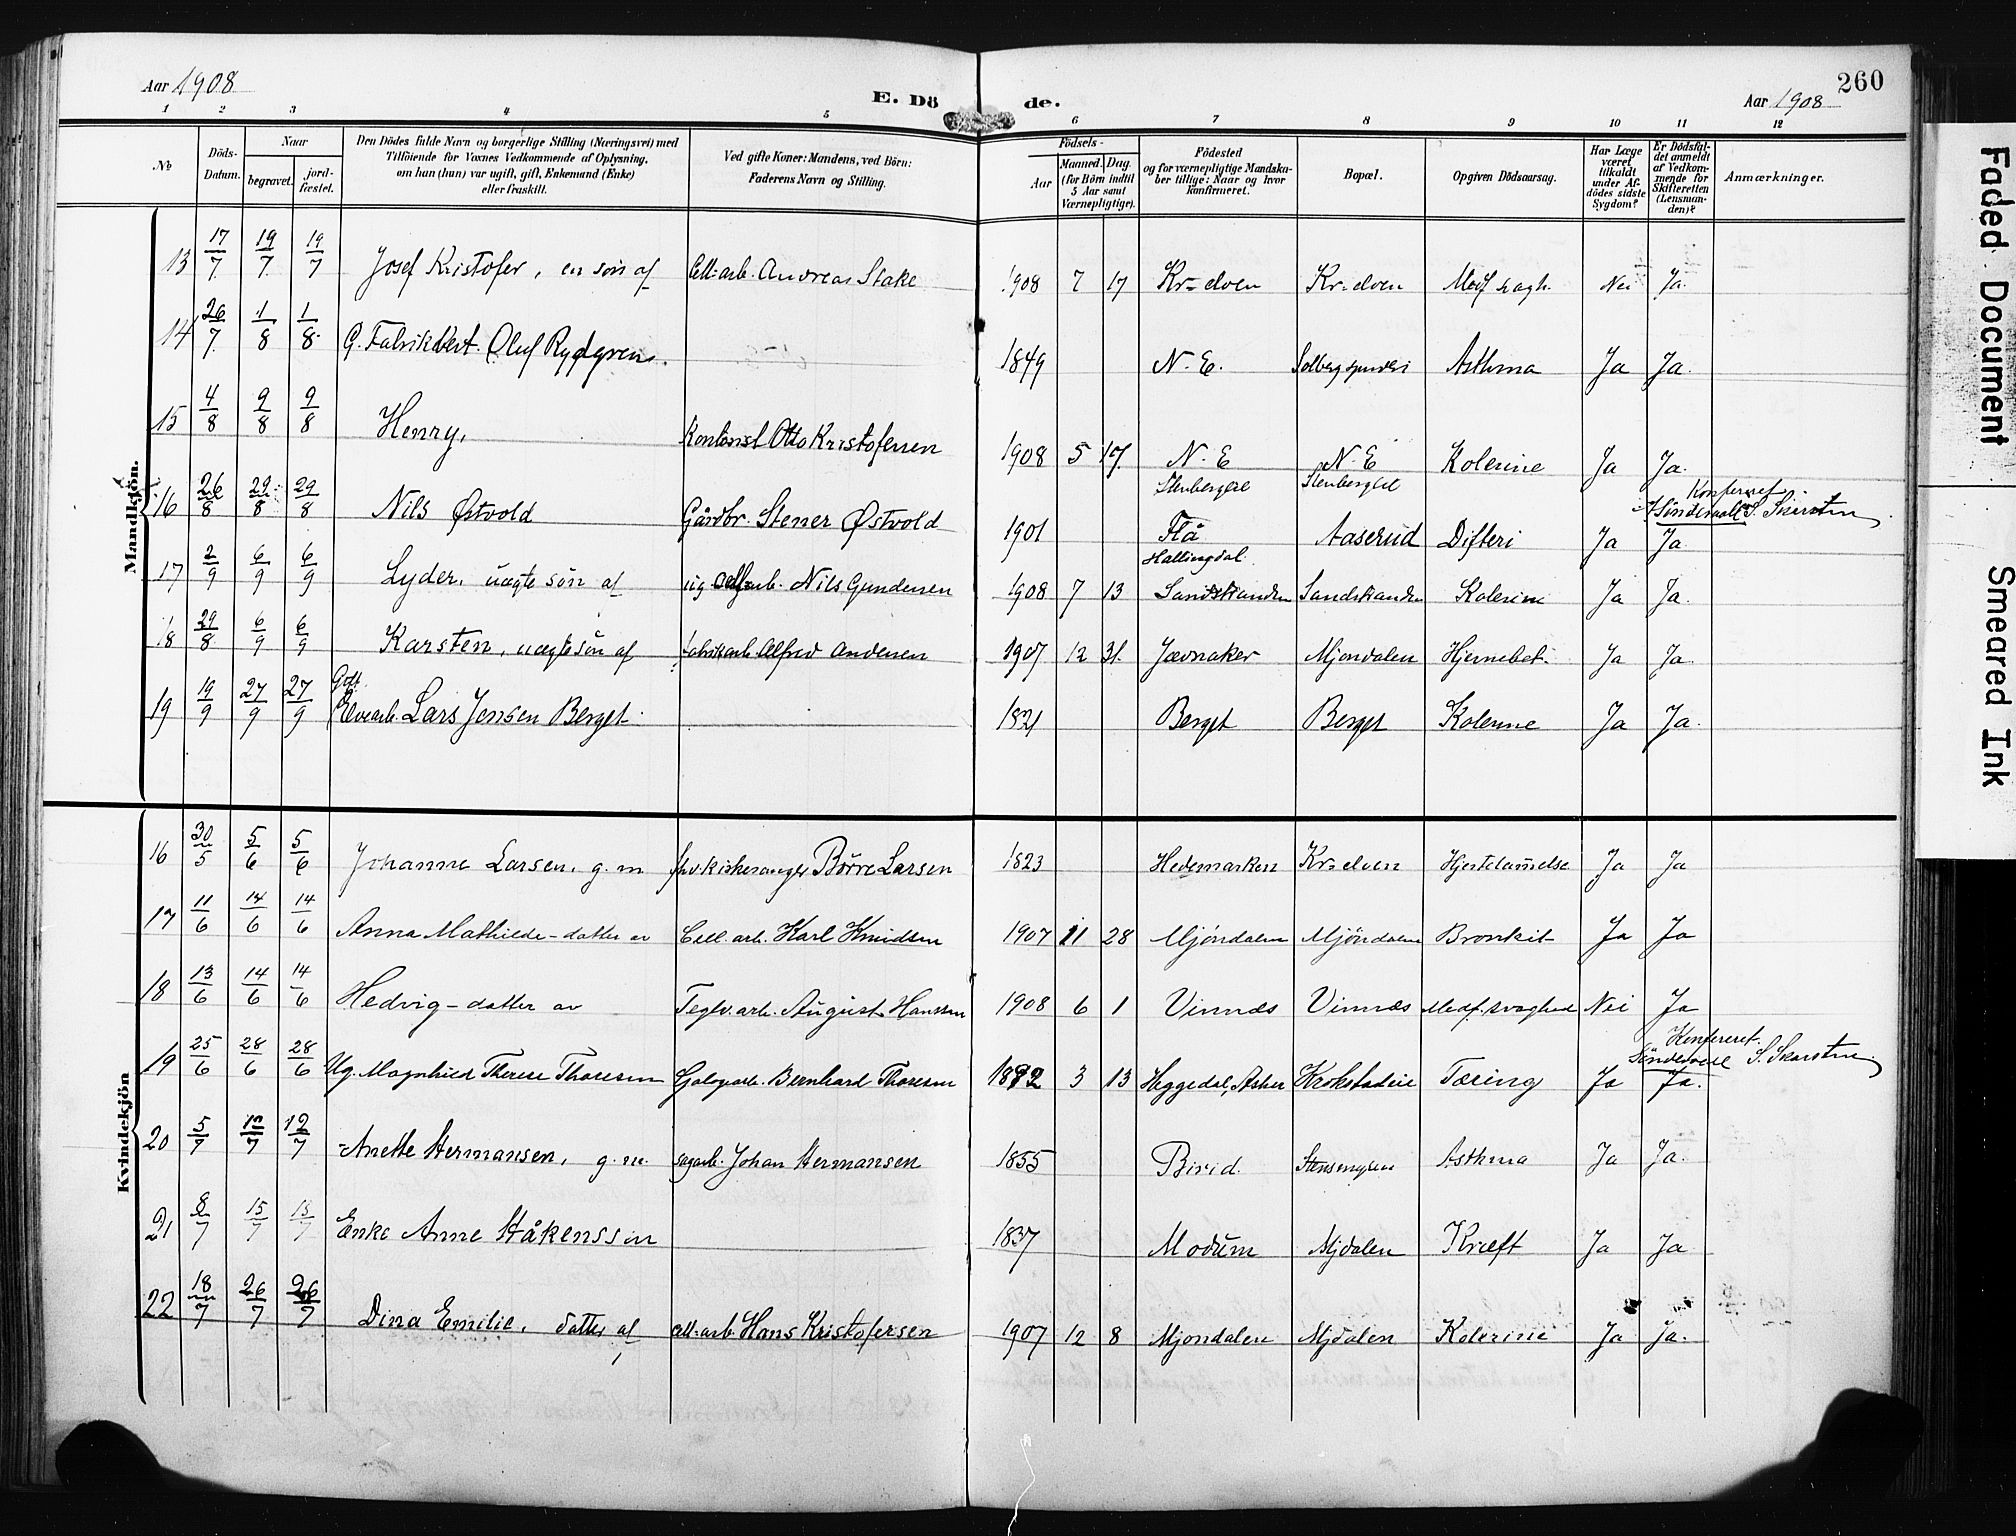 Aar 1908
E. Dö de.
Aar 1908
260
1 2 3 4 5 6 7 8 9 10 11 12
№
Döds-Datum.
Naar
begravet.
jord-fæstet.
Den Dödes fulde Navn og borgerlige Stilling (Næringsvei) med Tilföiende for Voxnes Vedkommende af Oplysning, om han (hun) var ugift, gift, Enkemand (Enke) eller fraskilt.
Ved gifte Koner: Mandens, ved Börn: Faderens Navn og Stilling.
Födsels-
Aar
Maaned. Dag.
(for Börn indtil 5 Aar samt Værnepligtige).
Födested og for værnepligtige Mandskaber tillige: Naar og hvor konfirmeret.
Bopæl.
Opgiven Dödsaarsag.
Har Læge været tilkaldt under Afdödes sidste Sygdom?
Er Dödsfaldet anmeldt af Vedkommende for Skifteretten (Lensmanden)?
Anmærkninger.
Mandkjön.
13 17/7 19/7 19/7 Josef Kristofer, en søn af Cell.arb. Andreas Stake 1908 7 17 Kr-elven Kr-elven Medf. svagh. Nei Ja
14 26/7 1/8 1/8 G. Oluf Rydgren. 1849 N.E. Solbergspinderi Asthma Ja Ja.
15 4/8 9/8 9/8 Henry, Kontorist Otto Kristofersen 1908 5 17 N.E Stenberget N.E Stenberget Kolerine Ja Ja.
16 26/8 29/8 29/8 Nils Østvold Gårdbr. Stener Østvold 1901 Flå Hallingdal. Aaserud Difteri Ja Ja Konfereret. S. Skarsten
17 2/9 6/9 6/9 Lyder, uægte søn af ug. Cell.arb. Nils Gundersen 1908 7 13 Sandstranden Sandstranden Kolerine Ja Ja.
18 29/8 6/9 6/9 Karsten, uægte søn af fabrikarb. Alfred Andersen 1907 12 31. Jævnaker Mjøndalen Hjernebet. Ja Ja.
19 19/9 27/9 27/9 Gift Elvearb. Lars Jensen Berget 1821 Berget Berget Kolerine Ja Ja.
Kvindekjön
16 30/5 5/6 5/6 Johanne Larsen, g.m. fhv. kirkesanger Børre Larsen 1823 Hedemarken Kr-elven Hjertelammelse Ja Ja
17 11/6 14/6 14/6 Anna Mathilde - datter av Cell.arb. Karl Knudsen 1907 11 28 Mjöndalen Mjöndalen Bronkit Ja Ja
18 13/6 14/6 14/6 Hedvig - datter av Teglv.arb. August Hanssen 1908 6 1 Vinnæs Vinnæs Medf. svaghed Nei Ja
19 25/6 28/6 28/6 Ug. Magnhild Therese Thoresen Bernhard Thoresen 1892 3 13 Heggedal, Asker Krokstadeie Tæring Ja Ja. Konfereret. S. Skarsten.
20 5/7 12/7 12/7 Anette Hermansen, g.m. sagarb. Johan Hermansen 1855 Birid. Asthma Ja Ja.
21 8/7 15/7 15/7 Enke Anne Håkenssen 1837 Modum Mjdalen Kræft Ja Ja
22 18/7 26/7 26/7 Dina Emilie, datter af cell.arb. Hans Kristofersen 1907 12 8 Mjøndalen Mjdalen Kolerine Ja Ja.
Faded Document
Smeared Ink